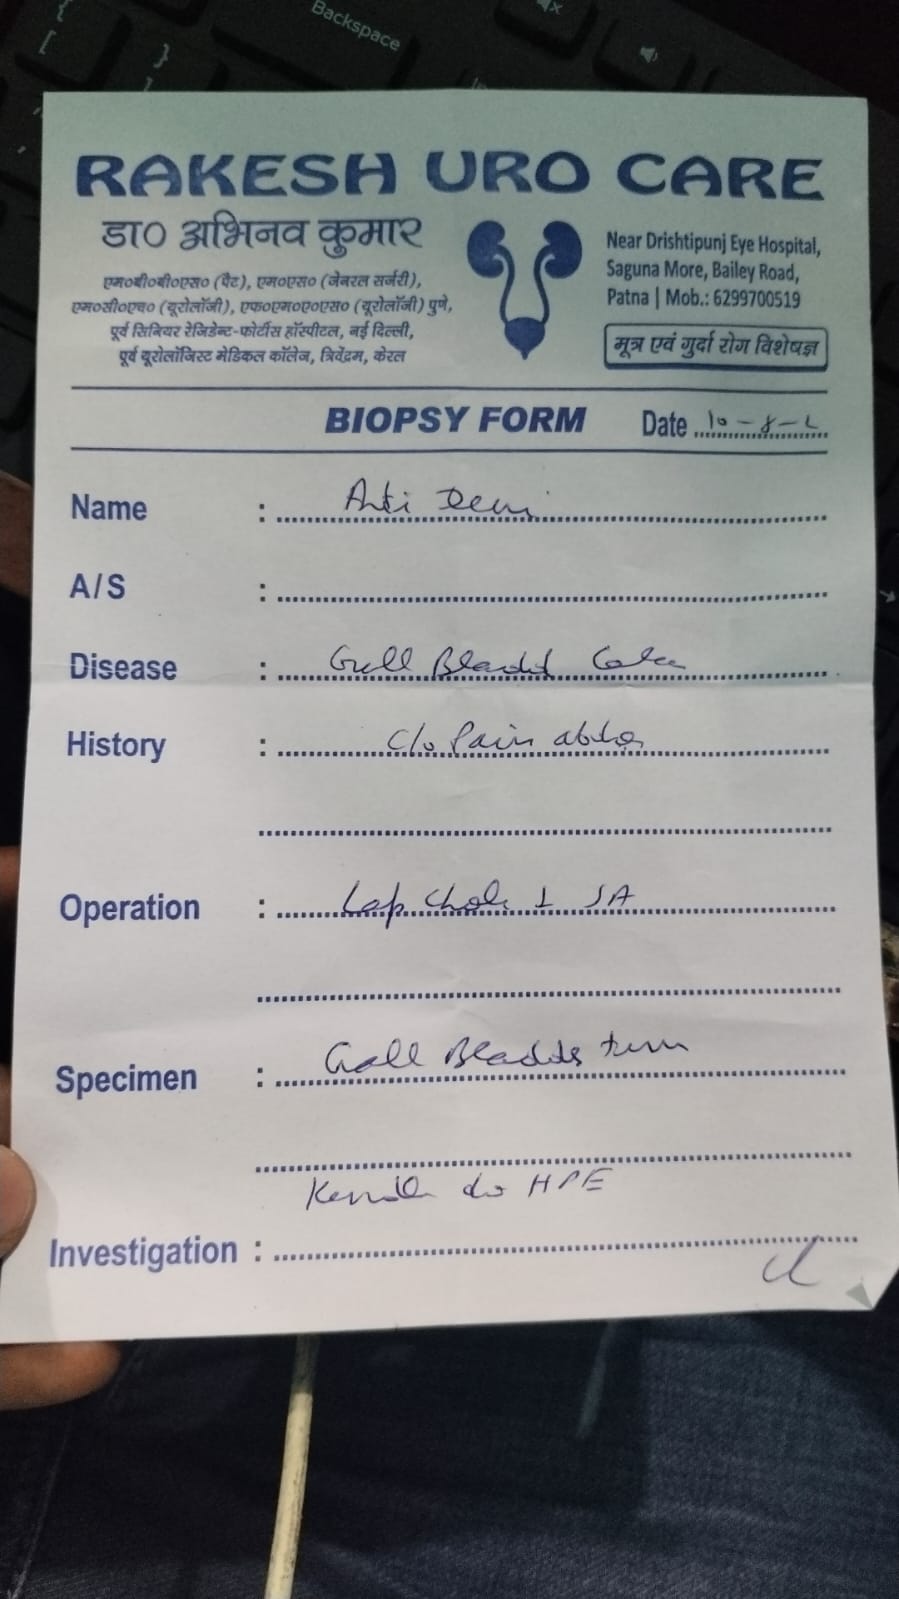 Backspace
RAKESH URO CARE
डा० अभिनव कुमार
एम०बी०बी०एस० (पैट), एम०एस० (जेनरल सर्जरी),
एम०सी०एच० (यूरोलॉजी), एफ०एम०ए०एस० (यूरोलॉजी) पुणे,
पूर्व सिनियर रेजिडेन्ट-फोर्टीस हॉस्पीटल, नई दिल्ली,
पूर्व यूरोलॉजिस्ट मेडिकल कॉलेज, त्रिवेंद्रम, केरल
Near Drishtipunj Eye Hospital,
Saguna More, Bailey Road,
Patna | Mob.: 6299700519
मूत्र एवं गुर्दा रोग विशेषज्ञ
BIOPSY FORM Date 10-8-
Name :
A/S :
Disease : Gall Bladd
History : C/o Pain abdo
Operation : Lap Chole
Specimen : Gall Bladde
do HPE
Investigation :